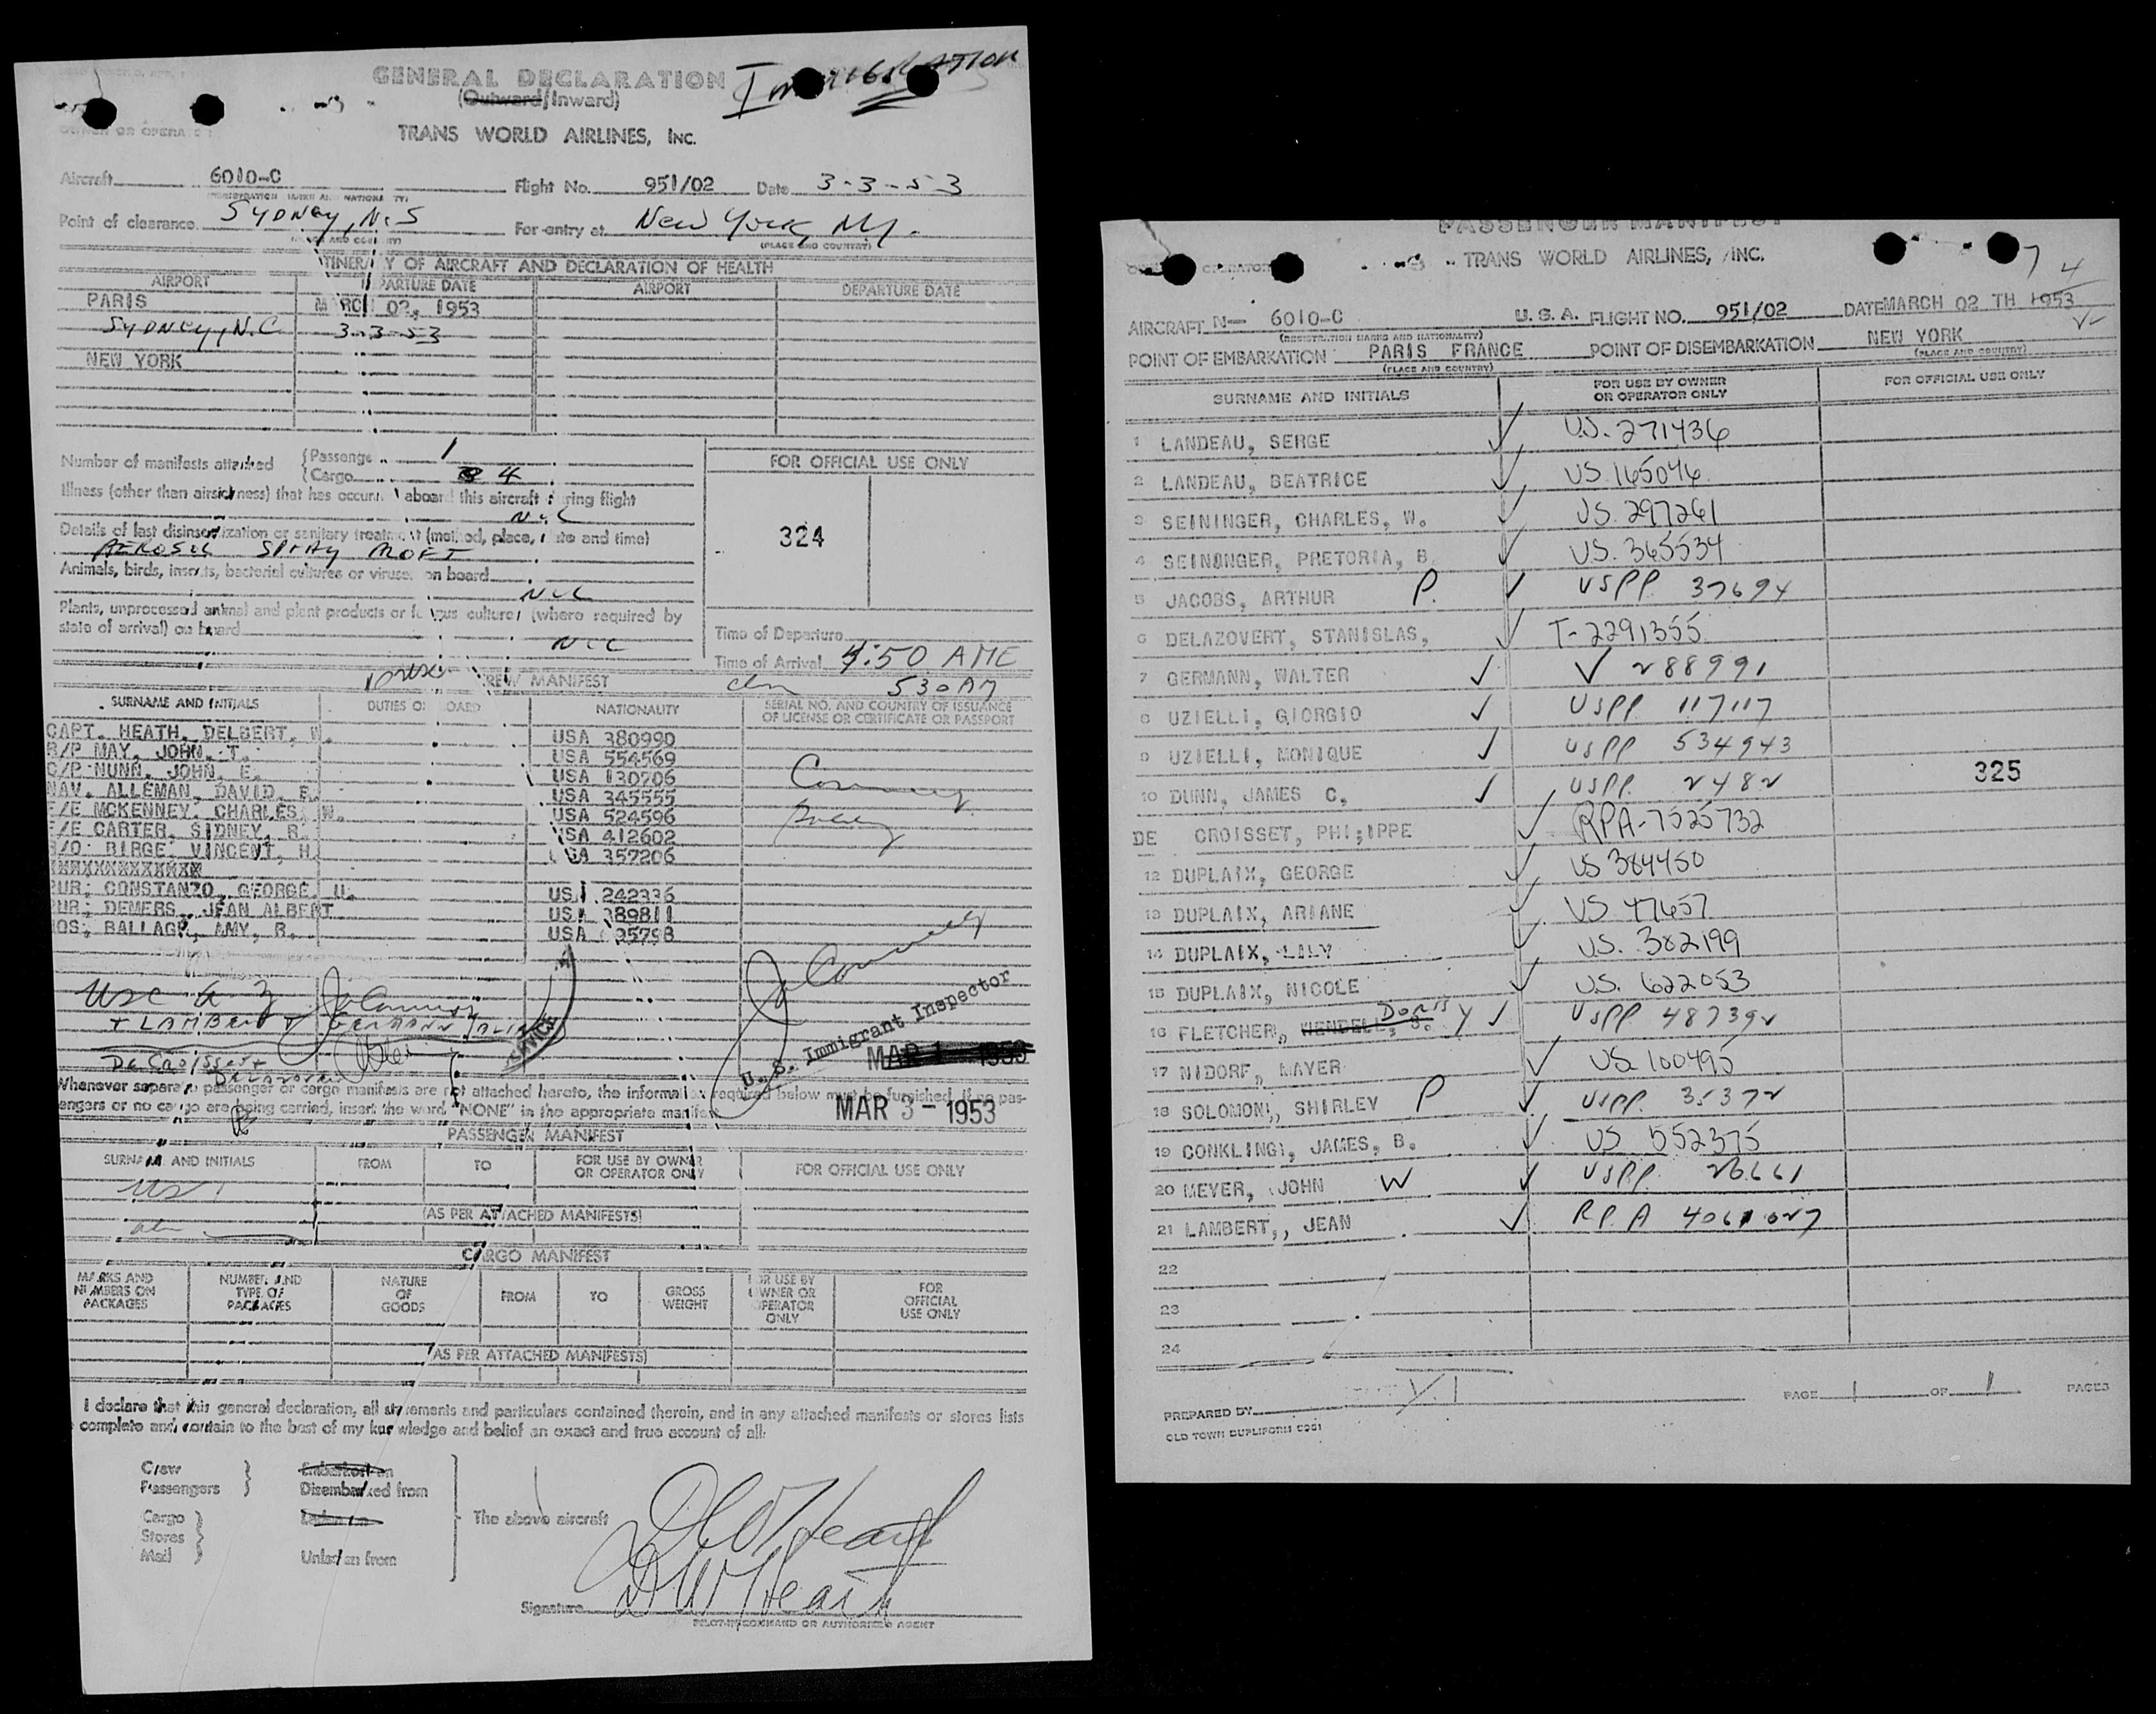 GENERAL DECLARATION
(Outward/Inward)
TRANS WORLD AIRLINES, INC.
Aircraft 6010-C Flight No. 951/02 Date 3-3-53
Point of clearance SYDNEY, N.S For entry at New York, NY.
(PLACE AND COUNTRY)
ITINERARY OF AIRCRAFT AND DECLARATION OF HEALTH
AIRPORT DEPARTURE DATE AIRPORT DEPARTURE DATE
PARIS MARCH 02, 1953
SYDNEY, N.C 3-3-53
NEW YORK
Number of manifests attached {Passenger 1
{Cargo 4
FOR OFFICIAL USE ONLY
Illness (other than airsickness) that has occurred aboard this aircraft during flight
NIL
Details of last disinsectization or sanitary treatment (method, place, date and time)
AEROSOL SPRAY
324
Animals, birds, insects, bacterial cultures or viruses on board
NIL
Plants, unprocessed animal and plant products or fungus cultures (where required by
state of arrival) on board
NIL
Time of Departure
Time of Arrival 4:50 AME
530 AM
CREW MANIFEST
SURNAME AND INITIALS DUTIES ON BOARD NATIONALITY SERIAL NO. AND COUNTRY OF ISSUANCE
OF LICENSE OR CERTIFICATE OR PASSPORT
CAPT. HEATH, DELBERT, W. USA 380990
R/P MAY, JOHN. T. USA 554569
C/P NUNN, JOHN, E. USA 130706
NAV. ALLEMAN, DAVID, E. USA 345555
F/E MCKENNEY, CHARLES, W. USA 524596
F/E CARTER, SIDNEY, R. USA 412602
R/O: BIRGE, VINCENT, H. USA 357206
PUR; CONSTANZO, GEORGE U. USA 242336
PUR; DEMERS, JEAN ALBERT USA 389811
HOS; BALLAGR, AMY, R. USA 95798
+ LAMBERT + GERMANN
De Croisset +
U. S. Immigrant Inspector
MAR 1 1953
Whenever separate passenger or cargo manifests are not attached hereto, the information required below must be furnished. If no pas-
sengers or no cargo are being carried, insert the word "NONE" in the appropriate manifest
MAR 3 - 1953
PASSENGER MANIFEST
SURNAME AND INITIALS FROM TO FOR USE BY OWNER
OR OPERATOR ONLY FOR OFFICIAL USE ONLY
(AS PER ATTACHED MANIFESTS)
CARGO MANIFEST
MARKS AND
NUMBERS ON
PACKAGES NUMBER AND
TYPE OF
PACKAGES NATURE
OF
GOODS FROM TO GROSS
WEIGHT FOR USE BY
OWNER OR
OPERATOR
ONLY FOR
OFFICIAL
USE ONLY
(AS PER ATTACHED MANIFESTS)
I declare that this general declaration, all statements and particulars contained therein, and in any attached manifests or stores lists
complete and contain to the best of my knowledge and belief an exact and true account of all:
Crew Embarked on
Passengers Disembarked from
Cargo Laden on
Stores The above aircraft
Mail Unladen from
DW Heath
DW Heath
Signature
PILOT-IN-COMMAND OR AUTHORIZED AGENT
PASSENGER MANIFEST
TRANS WORLD AIRLINES, INC.
AIRCRAFT N- 6010-C U. S. A. FLIGHT NO. 951/02 DATE MARCH 02 TH 1953
(REGISTRATION MARKS AND NATIONALITY)
POINT OF EMBARKATION PARIS FRANCE POINT OF DISEMBARKATION NEW YORK
(PLACE AND COUNTRY) (PLACE AND COUNTRY)
SURNAME AND INITIALS FOR USE BY OWNER
OR OPERATOR ONLY FOR OFFICIAL USE ONLY
1 LANDEAU, SERGE U.S. 271436
2 LANDEAU, BEATRICE US. 165046
3 SEININGER, CHARLES, W. US. 297261
4 SEININGER, PRETORIA, B. US. 365534
5 JACOBS, ARTHUR P. USPP. 37694
6 DELAZOVERT, STANISLAS, T-2291355
7 GERMANN, WALTER V 288991
8 UZIELLI, GIORGIO USPP. 117117
9 UZIELLI, MONIQUE USPP 534943
10 DUNN, JAMES C, USPP. 2482
325
DE CROISSET, PHI;IPPE RPA-7525732
12 DUPLAIX, GEORGE US 384450
13 DUPLAIX, ARIANE US 47657
14 DUPLAIX, LILY US. 382199
15 DUPLAIX, NICOLE US. 622053
16 FLETCHER, WENDELL, S. Doris Y USPP 487392
17 NIDORF, MAYER US 100495
18 SOLOMON, SHIRLEY P USPP. 35372
19 CONKLING, JAMES, B. US 552375
20 MEYER, JOHN W USPP. 26661
21 LAMBERT,, JEAN RP.A 4061027
22
23
24
PREPARED BY
PAGE 1 OF 1 PAGES
OLD TOWN DUPLIFORM